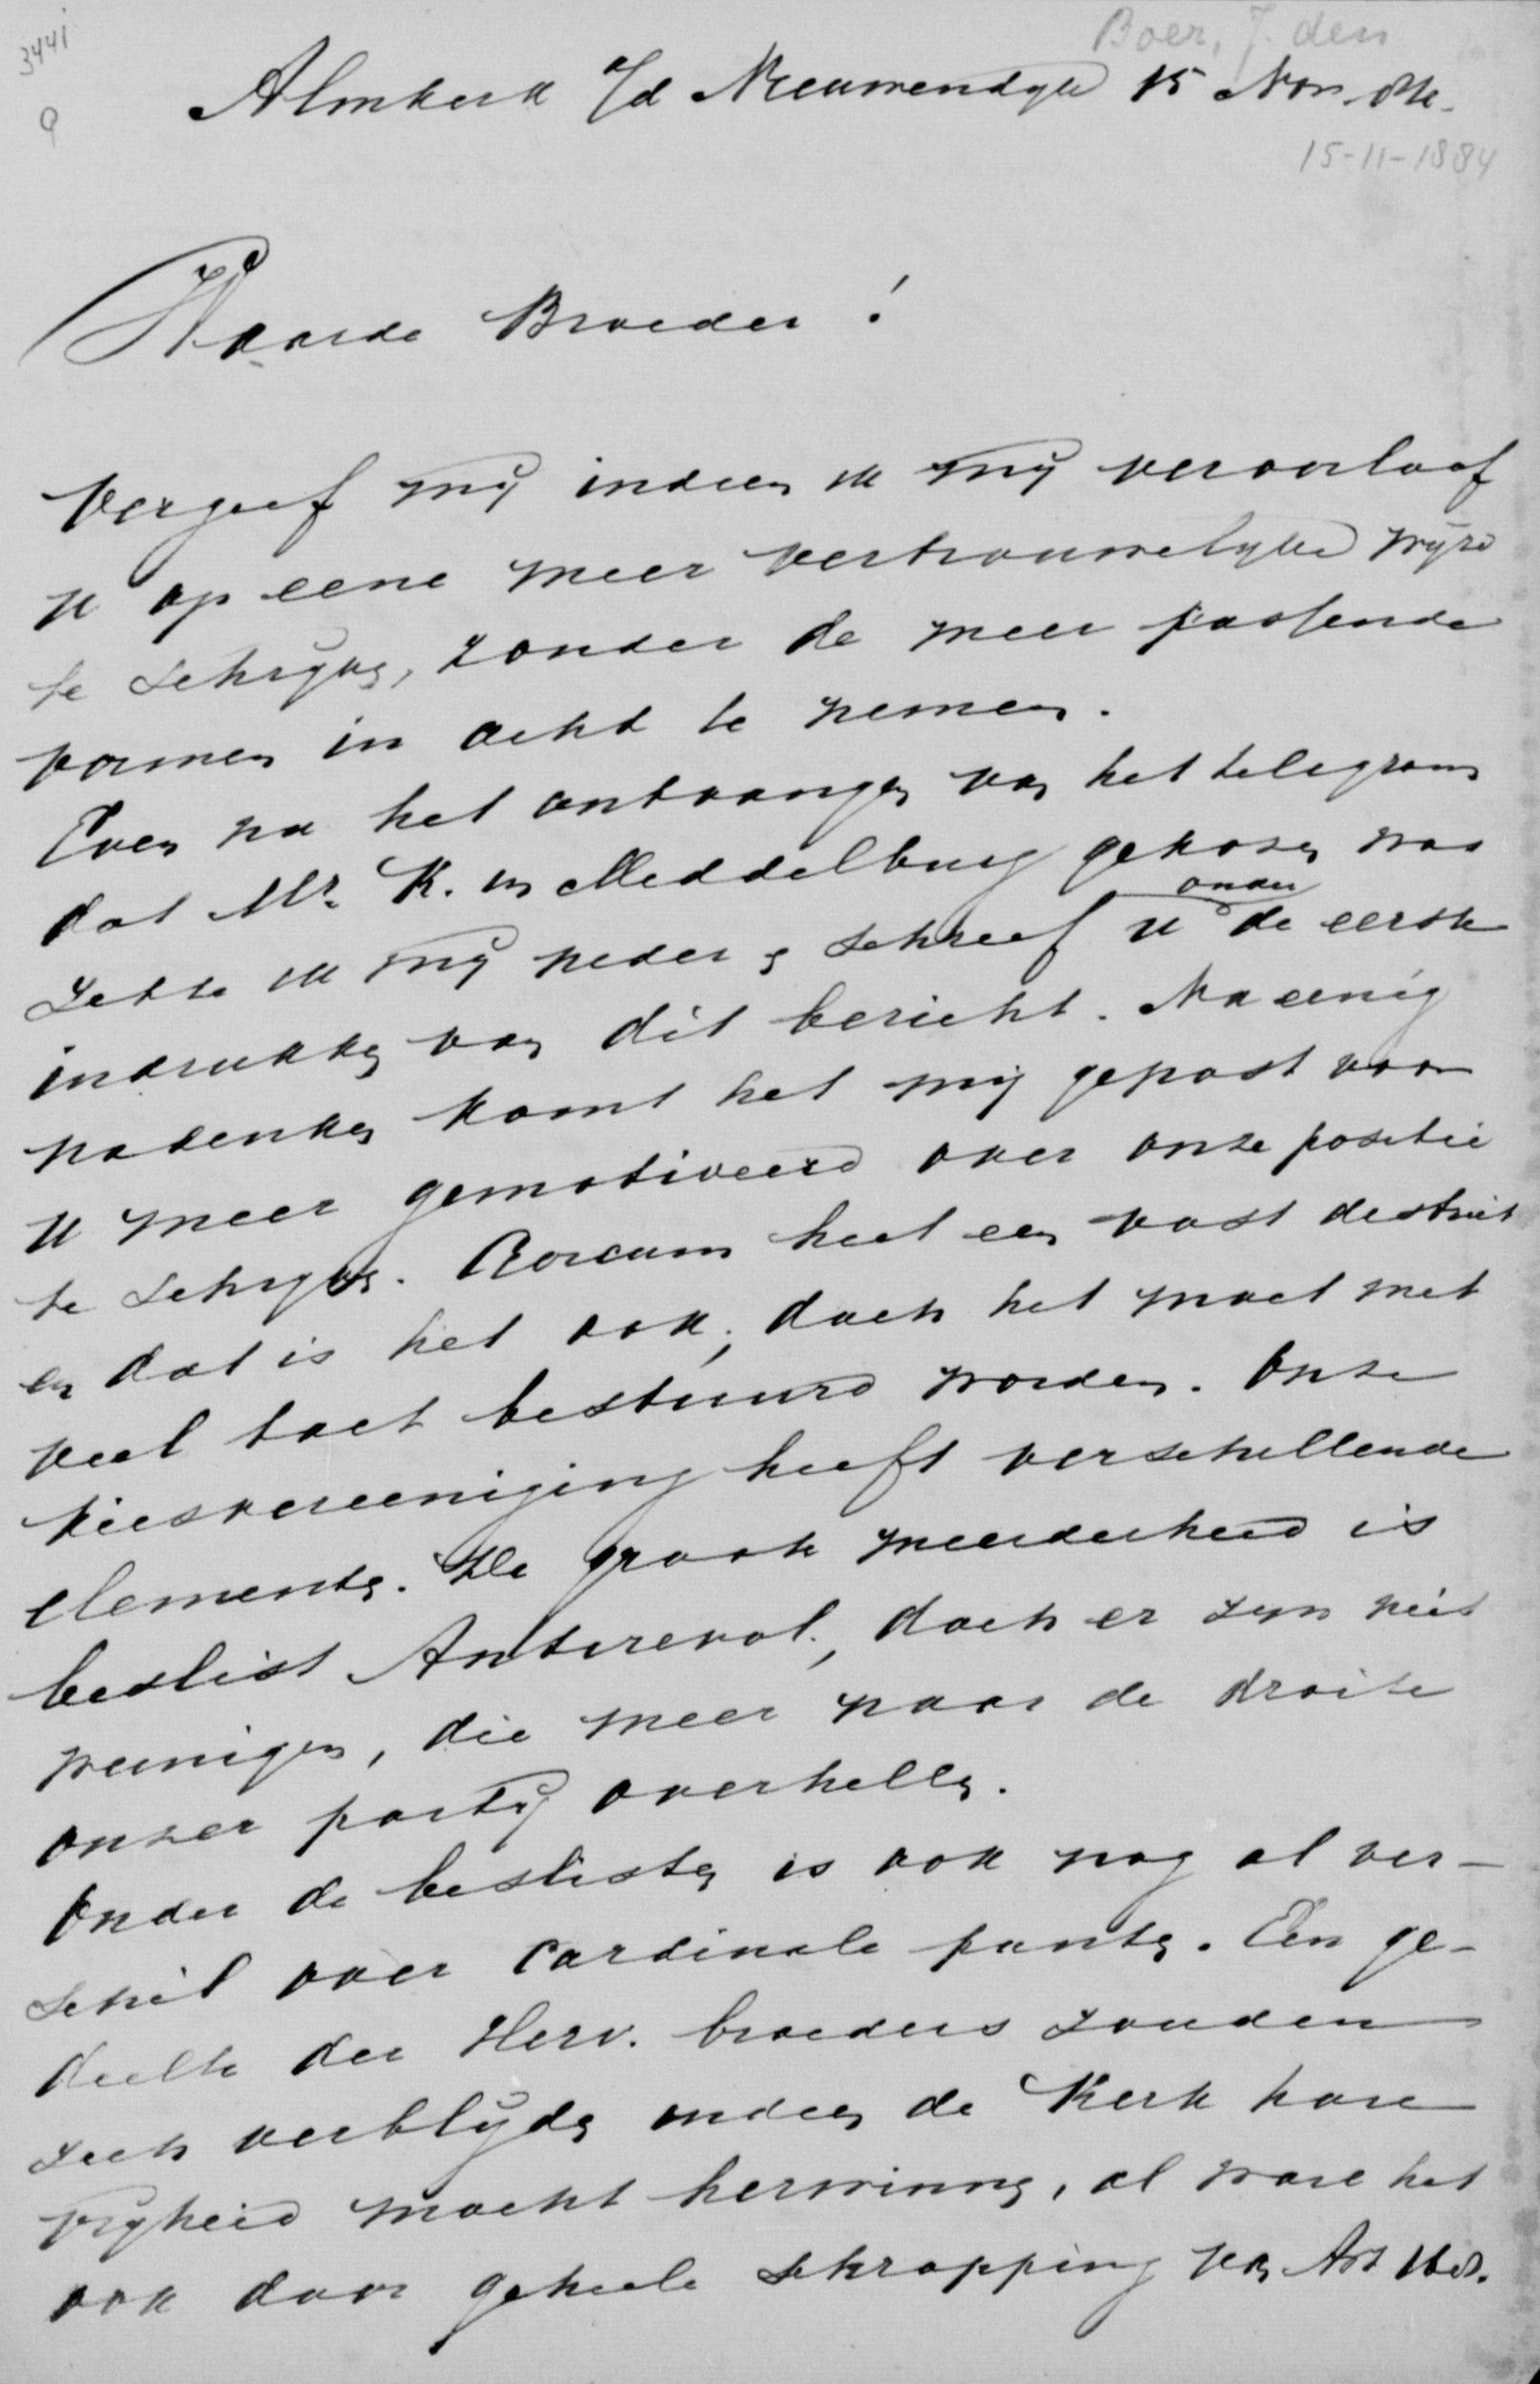 3441
9
Boer, J. den
Almkerk a/d Nieuwendyk 15 Nov. 84.
15-11-1884
Waarde Broeder!
Vergeef mij indien ik mij veroorloof
u op eene meer vertrouwelyke wijze
te schryven, zonder de meer passende
vormen in acht te nemen.
Even na het ontvangen van het telegram
dat Mr. K. in Middelburg gekozen was
zette ik mij neder en schreef u onder de eerste
indrukken van dit bericht. Na eenig
nadenken komt het mij gepast voor
u meer gemotiveerd over onze positie
te schryven. Gorcum heet een vast district
en dat is het ook; doch het moet met
veel tact bestuurd worden. Onze
kiesvereeniging heeft verschillende
elementen. De groote meerderheid is
beslist Antirevol., doch er zyn niet
weinigen, die meer naar de droite
onzer partij overhellen.
Onder de beslisten is ook nog al ver-
schil over cardinale punten. Een ge-
deelte der Herv. broeders zouden
zich verblijden indien de Kerk hare
vryheid mocht herwinnen, al ware het
ook door geheele schrapping van Art 168.